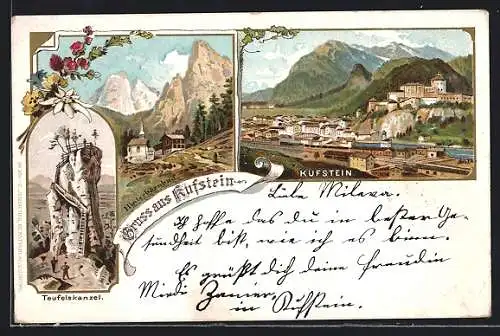 Hinterbärenbad
KUFSTEIN
Gruss aus Kufstein
Teufelskanzel.
Liebe Mileva.
Ich hoffe das du in bester Ge-
sundheit bist, wie ich es binn.
Es grüßt dich deine freundin
Mirdi Zanier
in Kufstein.